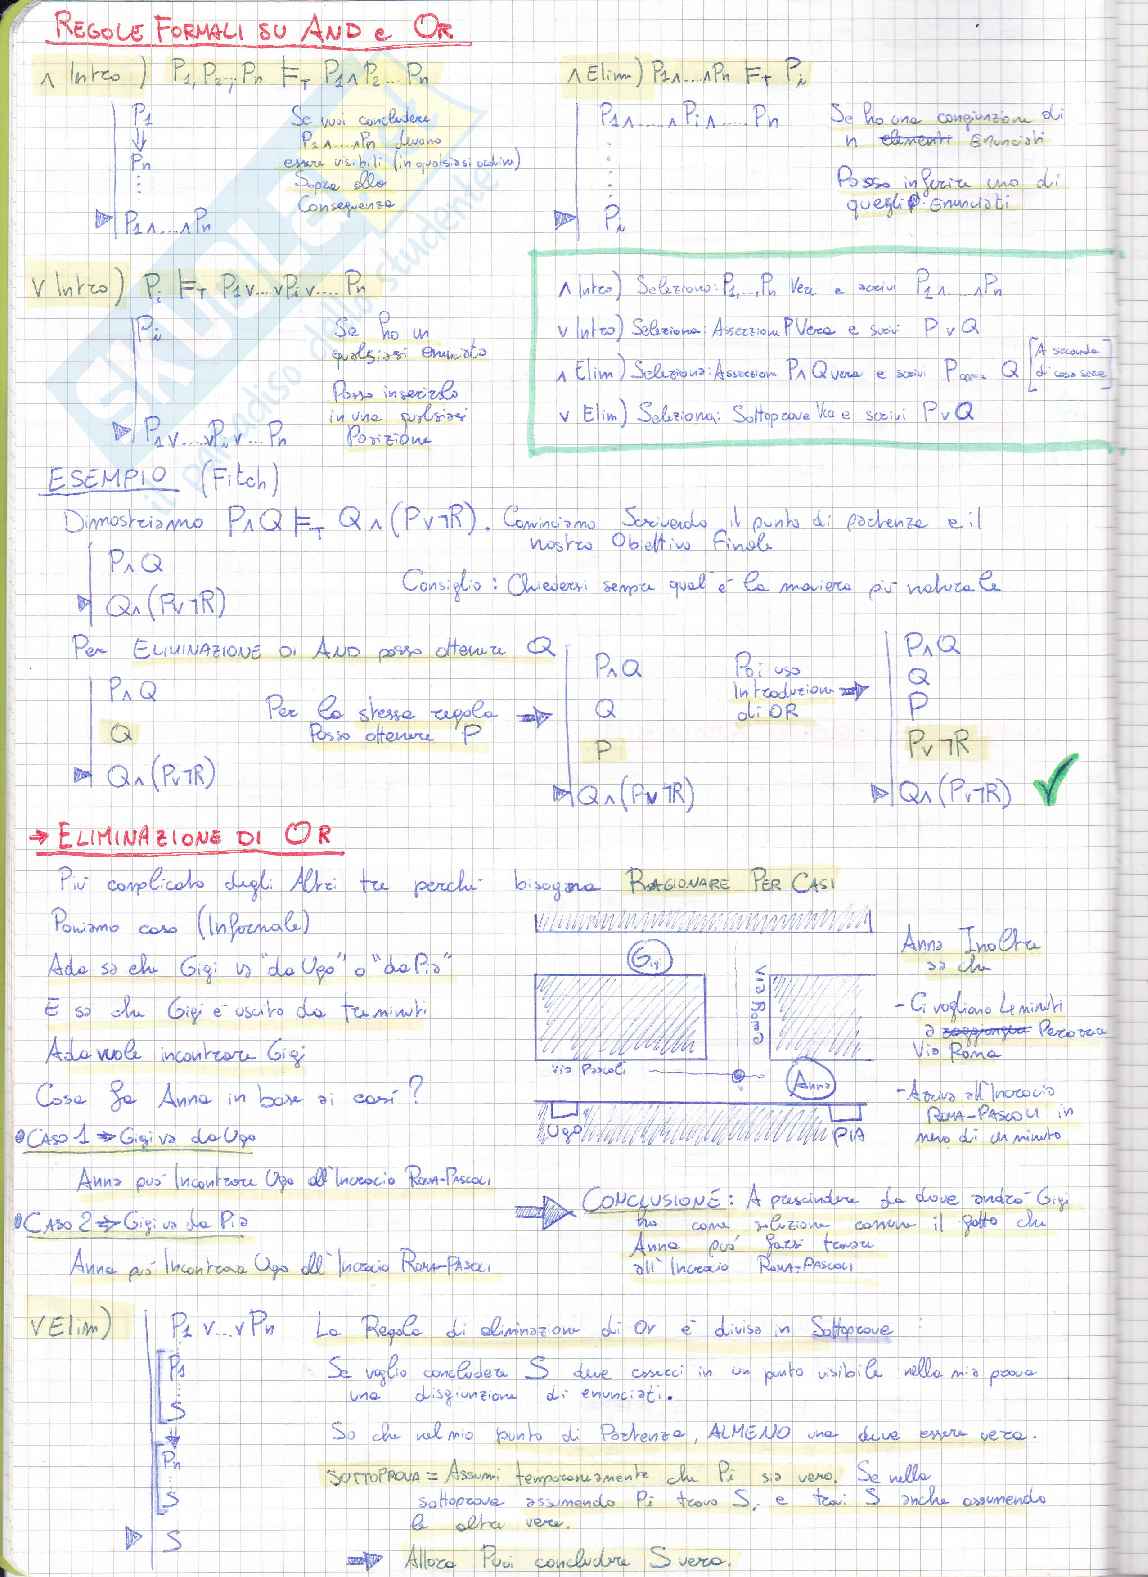 REGOLE FORMALI SU AND e OR
∧ Intro) P1, P2,, Pn ⊨T P1∧P2...Pn
P1
Pn
P1∧....∧Pn
Se vuoi concludere
P1∧....∧Pn devono
essere visibili (in qualsiasi ordine)
Sopra alla
Conseguenza
∧ Elim) P1∧....∧Pn ⊨T Pi
P1∧.....∧Pi∧.....Pn
Pi
Se ho una congiunzione di
n elementi enunciati
Posso inferire uno di
quegli enunciati
∨ Intro) Pi ⊨T P1∨....∨Pi∨.....Pn
Pi
P1∨....∨Pi∨....Pn
Se ho un
qualsiasi enunciato
Posso inserirlo
in una qualsiasi
Posizione
∧ Intro) Seleziono: P1,..,Pn Vera e scrivi P1∧....∧Pn
∨ Intro) Seleziona: Asserzione P Vera e scrivi P∨Q
∧ Elim) Seleziona: Asserzioni P∧Q vera e scrivi P Q [A seconda
di cosa serve]
∨ Elim) Seleziona: Sottoprove e scrivi P∨Q
SKUOLA
il paradiso dello studente
ESEMPIO (Fitch)
Dimostriamo P∧Q ⊨T Q∧(P∨¬R). Cominciamo Scrivendo il punto di partenza e il
nostro Obiettivo Finale
P∧Q
Q∧(P∨¬R)
Consiglio: Chiedersi sempre qual'è la maniera più naturale
Per ELIMINAZIONE DI AND posso ottenere Q
P∧Q
Q
Q∧(P∨¬R)
Per la stessa regola
Posso ottenere P
P∧Q
Q
P
Q∧(P∨¬R)
Poi uso
Introduzione
di OR
P∧Q
Q
P
P∨¬R
Q∧(P∨¬R)
→ ELIMINAZIONE DI OR
Più complicato degli Altri tre perché bisogna RAGIONARE PER CASI
Poniamo caso (Informale)
Ada sa che Gigi va "da Ugo" o "da Pia"
E sa che Gigi è uscito da tre minuti
Ada vuole incontrare Gigi
Cosa fa Anna in base ai casi?
Gigi
Via Roma
Via Pascoli
Anna
Ugo
PIA
Anna Inoltre
sa che
- Ci vogliono 4 minuti
a raggiungere Percorrere
Via Roma
- Arriva all'Incrocio
ROMA-PASCOLI in
meno di un minuto
CASO 1 ⇒ Gigi va da Ugo
Anna può Incontrare Ugo all'Incrocio ROMA-PASCOLI
CASO 2 ⇒ Gigi va da Pia
Anna può Incontrare Ugo all'Incrocio ROMA-PASCOLI
CONCLUSIONE: A prescindere da dove andrà Gigi
ho come soluzione comune il fatto che
Anna può farsi trovare
all'Incrocio ROMA-PASCOLI
∨ Elim)
P1∨...∨Pn
P1
S
Pn
S
S
La Regola di eliminazione di Or è divisa in Sottoprove:
Se voglio concludere S deve esserci in un punto visibile nella mia prova
una disgiunzione di enunciati.
So che nel mio punto di Partenza, ALMENO una deve essere vera.
SOTTOPROVA = Assumi temporaneamente che Pi sia vero. Se nella
sottoprova assumendo Pi trovo S, e trovi S anche assumendo
le altre vere.
Allora Puoi concludere S vero.